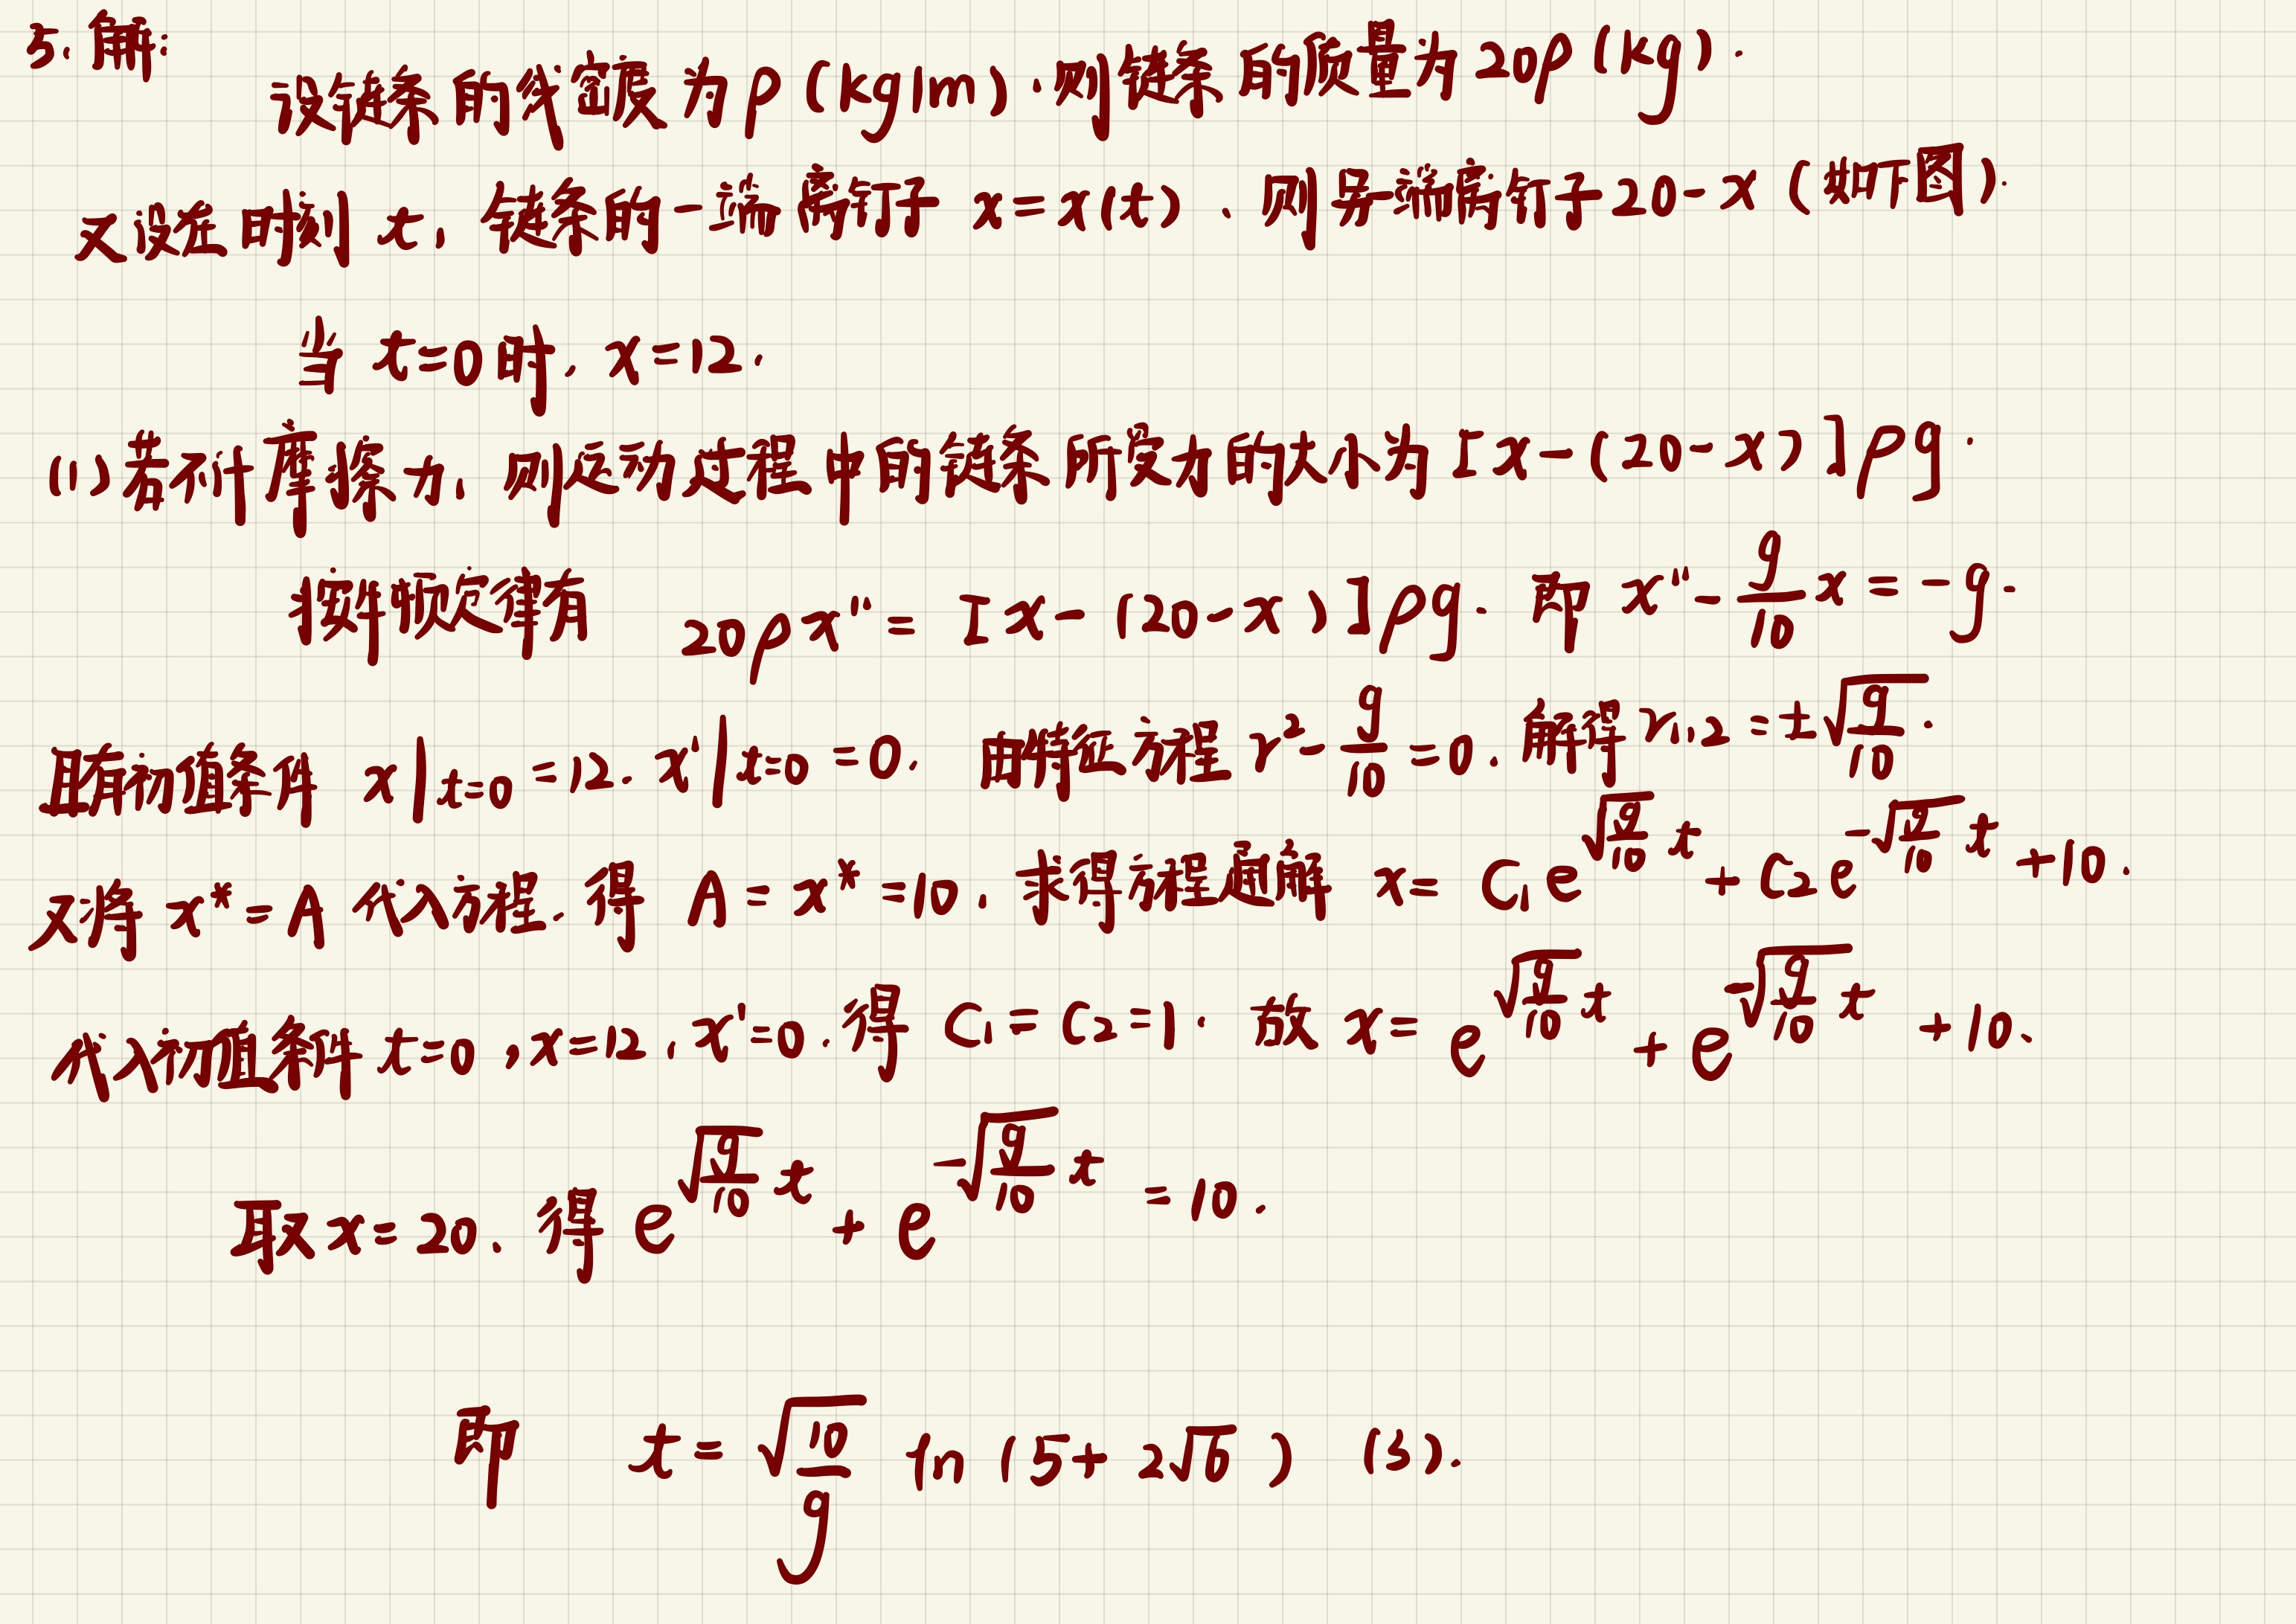 5. 解:
设链条的线密度为 ρ (kg/m). 则链条的质量为 20ρ (kg).
又设在时刻 t, 链条的一端离钉子 x=x(t), 则另一端离钉子 20-x (如下图).
当 t=0 时, x=12.
(1) 若不计摩擦力, 则运动过程中的链条所受力的大小为 [x-(20-x)]ρg.
按牛顿定律有 20ρx''= [x-(20-x)]ρg. 即 x''- \frac{g}{10}x = -g.
且有初值条件 x|_{t=0} =12. x'|_{t=0} =0. 由特征方程 r²- \frac{g}{10} =0. 解得 r_{1,2} = ±\sqrt{\frac{g}{10}}.
又将 x* = A 代入方程. 得 A = x* =10. 求得方程通解 x= C₁e^{\sqrt{\frac{g}{10}}t} + C₂e^{-\sqrt{\frac{g}{10}}t} +10.
代入初值条件 t=0, x=12, x'=0. 得 C₁ = C₂ =1. 故 x= e^{\sqrt{\frac{g}{10}}t} + e^{-\sqrt{\frac{g}{10}}t} +10.
取 x=20. 得 e^{\sqrt{\frac{g}{10}}t} + e^{-\sqrt{\frac{g}{10}}t} =10.
即 t= \sqrt{\frac{10}{g}} ln (5+ 2\sqrt{6}) (s).